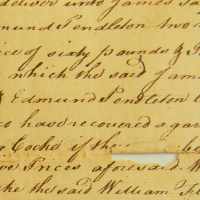 deliver unto James Ta
mund Pendleton two
ice of sixty pounds &
which the said Jam
Edmund Pendleton
have recovered a
Cocke if the be
Prices aforesaid W
the said William